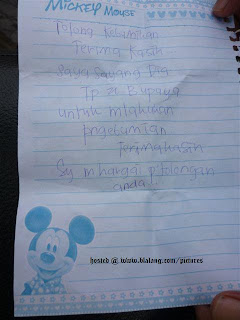 MICKEY MOUSE
Tolong Kebumikan
Terima Kasih
Saya Sayang Dia
Tp z Bupaya
untuk mlakukan
pngebumian
Terimakasih
Sy mhargai p'tolongan
anda!
hosted @ www.blalang.com/pictures